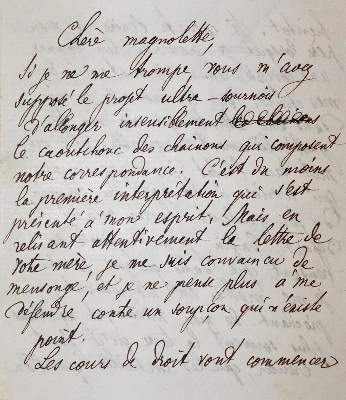 Chère magnolette,
Si je ne me trompe, vous m'avez
supposé le projet ultra-sournois
d'allonger insensiblement les chainons
le caoutchouc des chainons qui composent
notre correspondance. C'est du moins
la première interprétation qui s'est
présenté à mon esprit. Mais en
relisant attentivement la lettre de
votre mère, je me suis convaincu de
mensonge, et je ne pense plus à me
défendre contre un soupçon qui n'existe
point.
Les cours de droit vont commencer